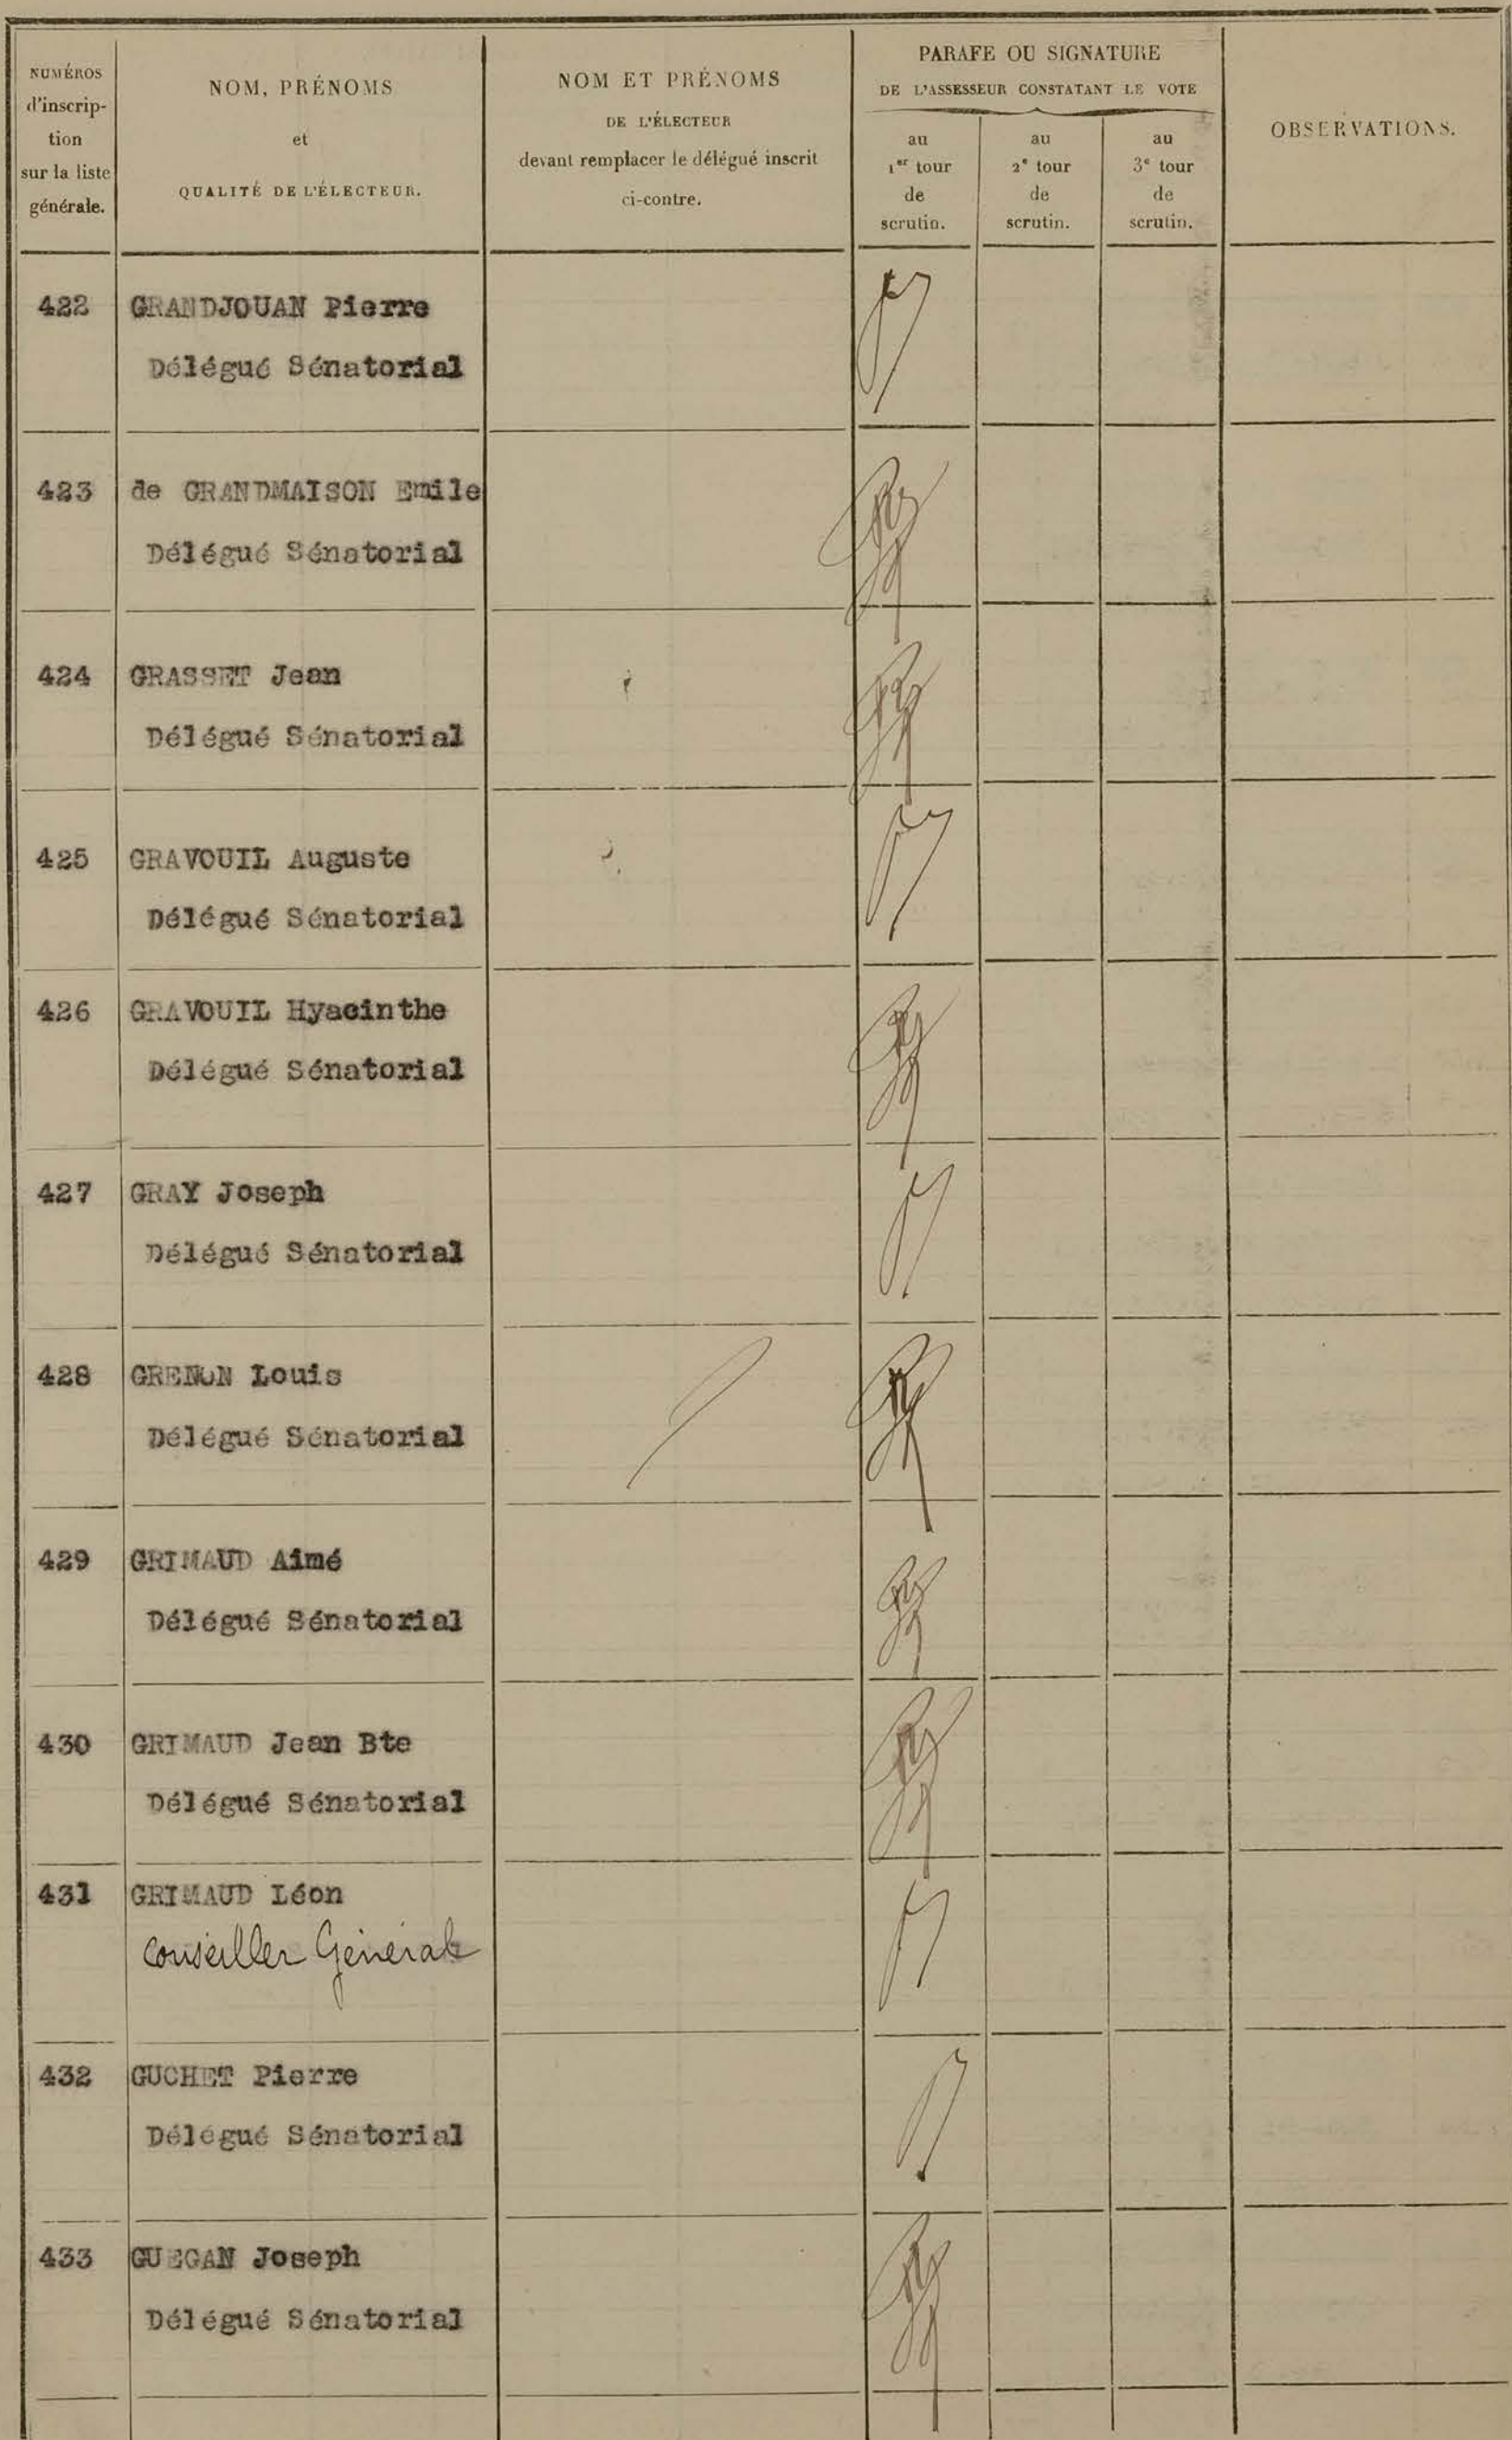 NUMÉROS
d'inscrip-
tion
sur la liste
générale.
NOM, PRÉNOMS
et
QUALITÉ DE L'ÉLECTEUR.
NOM ET PRÉNOMS
DE L'ÉLECTEUR
devant remplacer le délégué inscrit
ci-contre.
PARAFE OU SIGNATURE
DE L'ASSESSEUR CONSTATANT LE VOTE
au
1er tour
de
scrutin.
au
2e tour
de
scrutin.
au
3e tour
de
scrutin.
OBSERVATIONS.
422 GRANDJOUAN Pierre
Délégué Sénatorial
423 de GRANDMAISON Emile
Délégué Sénatorial
424 GRASSET Jean
Délégué Sénatorial
425 GRAVOUIL Auguste
Délégué Sénatorial
426 GRAVOUIL Hyacinthe
Délégué Sénatorial
427 GRAY Joseph
Délégué Sénatorial
428 GRENON Louis
Délégué Sénatorial
429 GRIMAUD Aimé
Délégué Sénatorial
430 GRIMAUD Jean Bte
Délégué Sénatorial
431 GRIMAUD Léon
Conseiller Général
432 GUCHET Pierre
Délégué Sénatorial
433 GUEGAN Joseph
Délégué Sénatorial